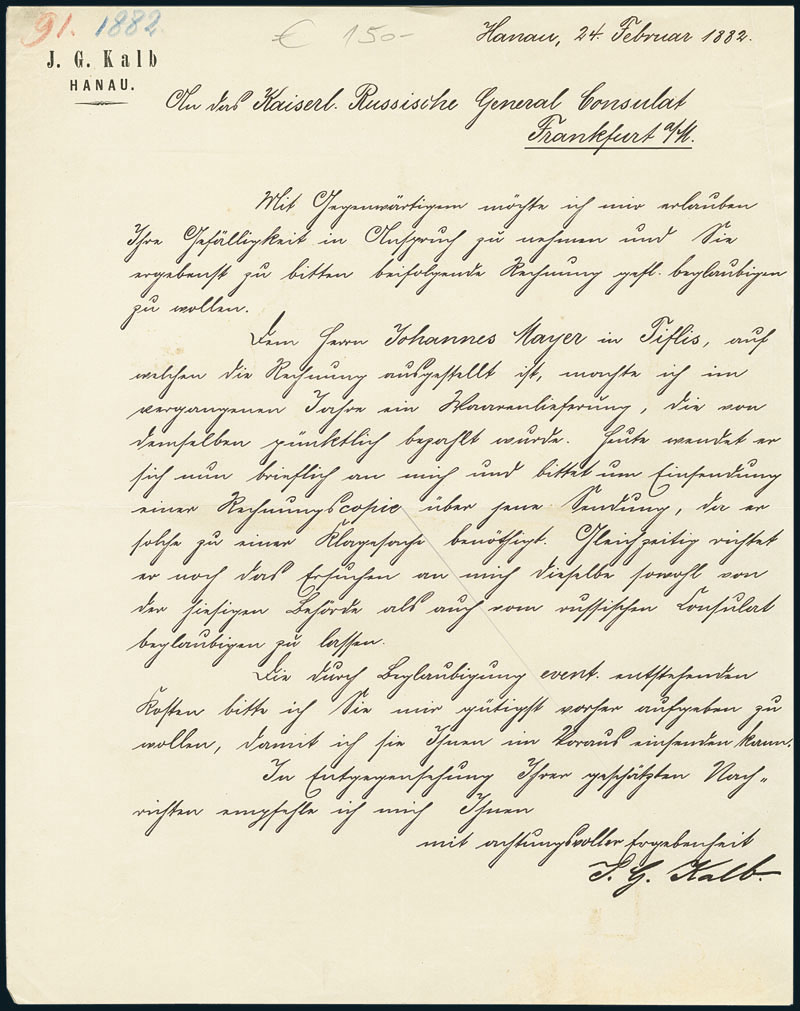 91. 1882.
€ 150-
J. G. Kalb
HANAU.
Hanau, 24. Februar 1882.
An das Kaiserl. Russische General Consulat
Frankfurt a/M.
Mit Gegenwärtigem möchte ich mir erlauben
Ihre Gefälligkeit in Anspruch zu nehmen und Sie
ergebenst zu bitten beifolgende Rechnung gefl. beglaubigen
zu wollen.
Dem Herrn Johannes Mayer in Tiflis, auf
welchen die Rechnung ausgestellt ist, machte ich im
vergangenen Jahre ein Waarenlieferung, die von
demselben pünktlich bezahlt wurde. Heute wendet er
sich nun brieflich an mich und bittet um Einsendung
einer Rechnungscopie über jene Sendung, da er
solche zu einer Klagesache benöthigt. Gleichzeitig richtet
er noch das Ersuchen an mich dieselbe sowohl von
der hiesigen Behörde als auch vom russischen Consulat
beglaubigen zu lassen.
Die durch Beglaubigung event. entstehenden
Kosten bitte ich Sie mir gütigst vorher aufgeben zu
wollen, damit ich sie Ihnen im Voraus einsenden kann.
In Entgegensehung Ihrer geschätzten Nach-
richten empfehle ich mich Ihnen
mit achtungsvoller Ergebenheit
J. G. Kalb.